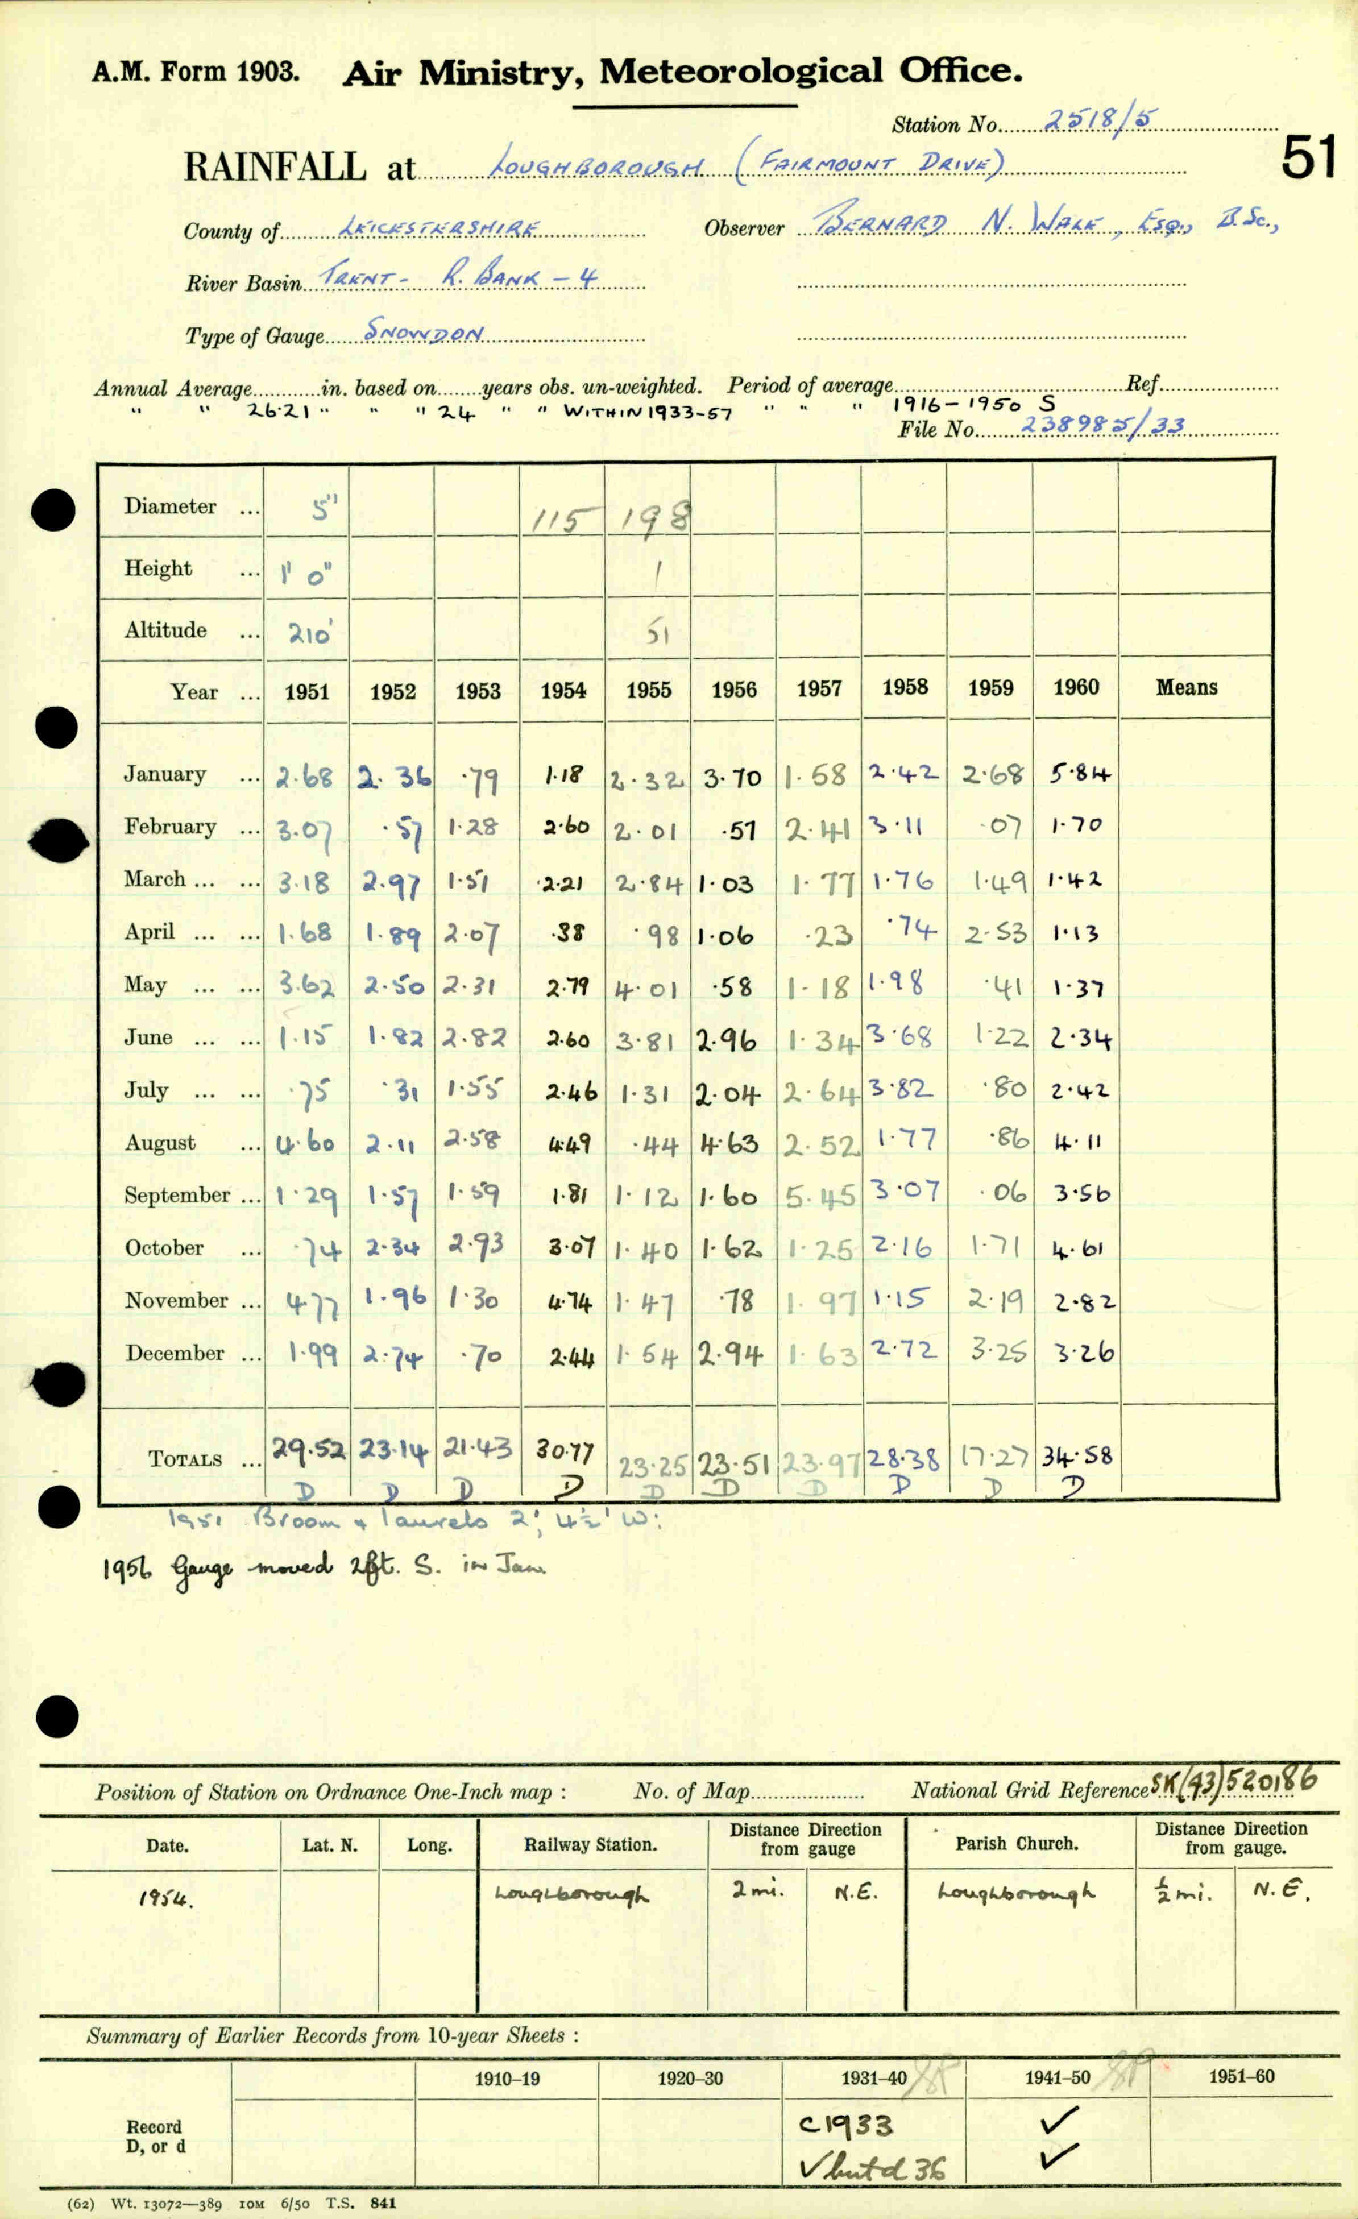 A.M. Form 1903. Air Ministry, Meteorological Office.
Station No. 2518/5
RAINFALL at LOUGHBOROUGH (FAIRMOUNT DRIVE) 51
County of LEICESTERSHIRE Observer BERNARD N. WALE, Esq., B.Sc.,
River Basin TRENT - R. BANK - 4
Type of Gauge SNOWDON
Annual Average in. based on years obs. un-weighted. Period of average Ref.
" " 26.21 " " " 24 " " WITHIN 1933-57 " " " 1916-1950 S
File No. 238985/33
Diameter ... 5" 115 198
Height ... 1' 0" 1
Altitude ... 210' 51
Year ... 1951 1952 1953 1954 1955 1956 1957 1958 1959 1960 Means
January ... 2.68 2.36 .79 1.18 2.32 3.70 1.58 2.42 2.68 5.84
February ... 3.07 .57 1.28 2.60 2.01 .57 2.41 3.11 .07 1.70
March ... ... 3.18 2.97 1.51 2.21 2.84 1.03 1.77 1.76 1.49 1.42
April ... ... 1.68 1.89 2.07 .38 .98 1.06 .23 .74 2.53 1.13
May ... ... 3.62 2.50 2.31 2.79 4.01 .58 1.18 1.98 .41 1.37
June ... ... 1.15 1.82 2.82 2.60 3.81 2.96 1.34 3.68 1.22 2.34
July ... ... .75 .31 1.55 2.46 1.31 2.04 2.64 3.82 .80 2.42
August ... 4.60 2.11 2.58 4.49 .44 4.63 2.52 1.77 .86 4.11
September ... 1.29 1.57 1.59 1.81 1.12 1.60 5.45 3.07 .06 3.56
October ... .74 2.34 2.93 3.07 1.40 1.62 1.25 2.16 1.71 4.61
November ... 4.77 1.96 1.30 4.74 1.47 .78 1.97 1.15 2.19 2.82
December ... 1.99 2.74 .70 2.44 1.54 2.94 1.63 2.72 3.25 3.26
TOTALS ... 29.52 23.14 21.43 30.77 23.25 23.51 23.97 28.38 17.27 34.58
D D D D D D D D D D
1951 Broom & laurels 2', 4½' W:
1956 Gauge moved 2ft. S. in Jan
Position of Station on Ordnance One-Inch map : No. of Map National Grid Reference SK(43)520186
Date. Lat. N. Long. Railway Station. Distance Direction from gauge Parish Church. Distance Direction from gauge.
1954. Loughborough 2 mi. N.E. Loughborough ½ mi. N.E.
Summary of Earlier Records from 10-year Sheets :
1910–19 1920–30 1931–40 1941–50 1951–60
Record c1933 ✓
D, or d ✓ but d 36 ✓
(62) Wt. 13072—389 10M 6/50 T.S. 841